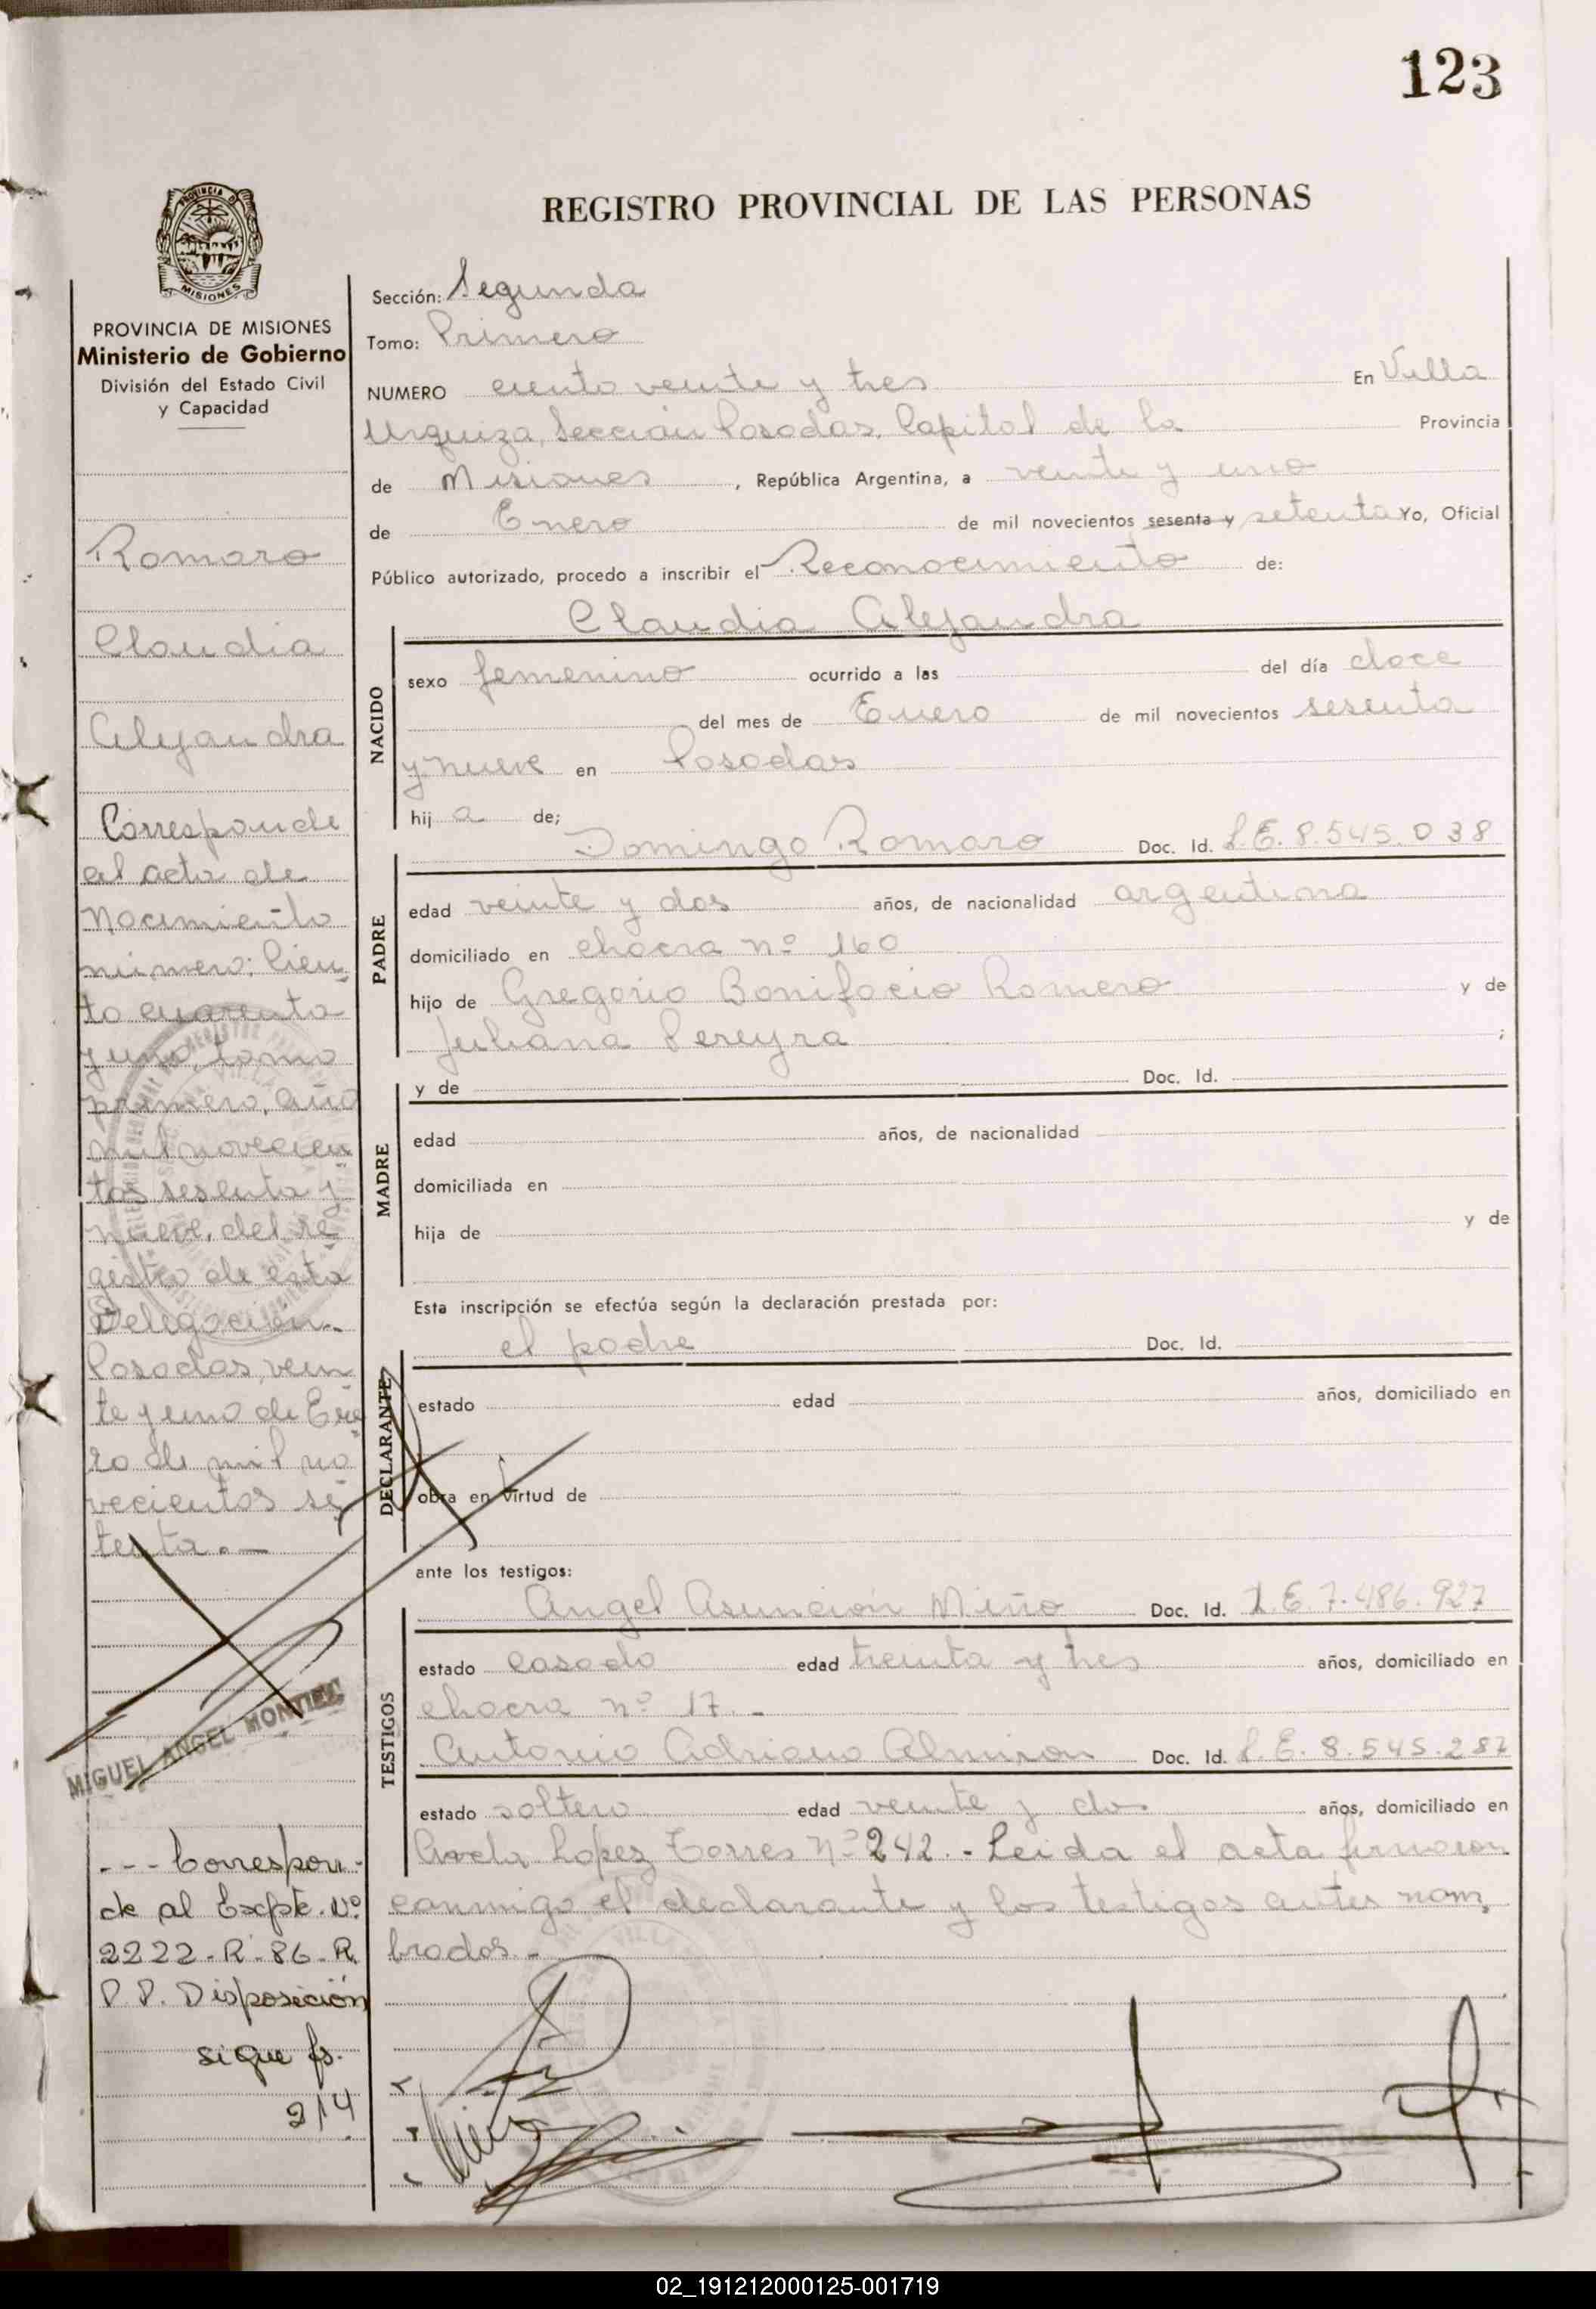 123
REGISTRO PROVINCIAL DE LAS PERSONAS
PROVINCIA DE MISIONES
Ministerio de Gobierno
División del Estado Civil
y Capacidad
Romaro
Claudia
Alejandra
Corresponde
al acta de
Nacimiento
número: Cien
to cuarenta
y uno, tomo
primero, año
mil novecien
tos sesenta y
nueve, del re
gistro de esta
Delegación.-
Posadas, vein
te y uno de Ene
ro de mil no
vecientos se
tenta.-
MIGUEL ANGEL MONTIEL
--- Correspon-
de al Expte. Nº
2222-R-86-R.
P.P. Disposición
sigue fs.
214
Sección: Segunda
Tomo: Primero
NUMERO ciento veinte y tres En Villa
Urquiza, Sección Posadas, Capital de la Provincia
de Misiones, República Argentina, a veinte y uno
de Enero de mil novecientos sesenta y setenta Yo, Oficial
Público autorizado, procedo a inscribir el Reconocimiento de:
Claudia Alejandra
NACIDO
sexo femenino ocurrido a las del día doce
del mes de Enero de mil novecientos sesenta
y nueve en Posadas
hij a de;
PADRE
Domingo Romaro Doc. Id. L.E. 8.545.038
edad veinte y dos años, de nacionalidad argentina
domiciliado en chacra nº 160
hijo de Gregorio Bonifacio Romero y de
Juliana Pereyra ;
MADRE
y de Doc. Id.
edad años, de nacionalidad
domiciliada en
hija de y de
Esta inscripción se efectúa según la declaración prestada por:
DECLARANTE
el padre Doc. Id.
estado edad años, domiciliado en
obra en virtud de
ante los testigos:
TESTIGOS
Angel Asunción Miño Doc. Id. L.E. 7.486.927
estado casado edad treinta y tres años, domiciliado en
chacra nº 17.-
Antonio Adriano Almiron Doc. Id. L.E. 8.545.287
estado soltero edad veinte y dos años, domiciliado en
Lopez Torres Nº 242.- Leida el acta firmaron
conmigo el declarante y los testigos antes nom
brados.-
02_191212000125-001719